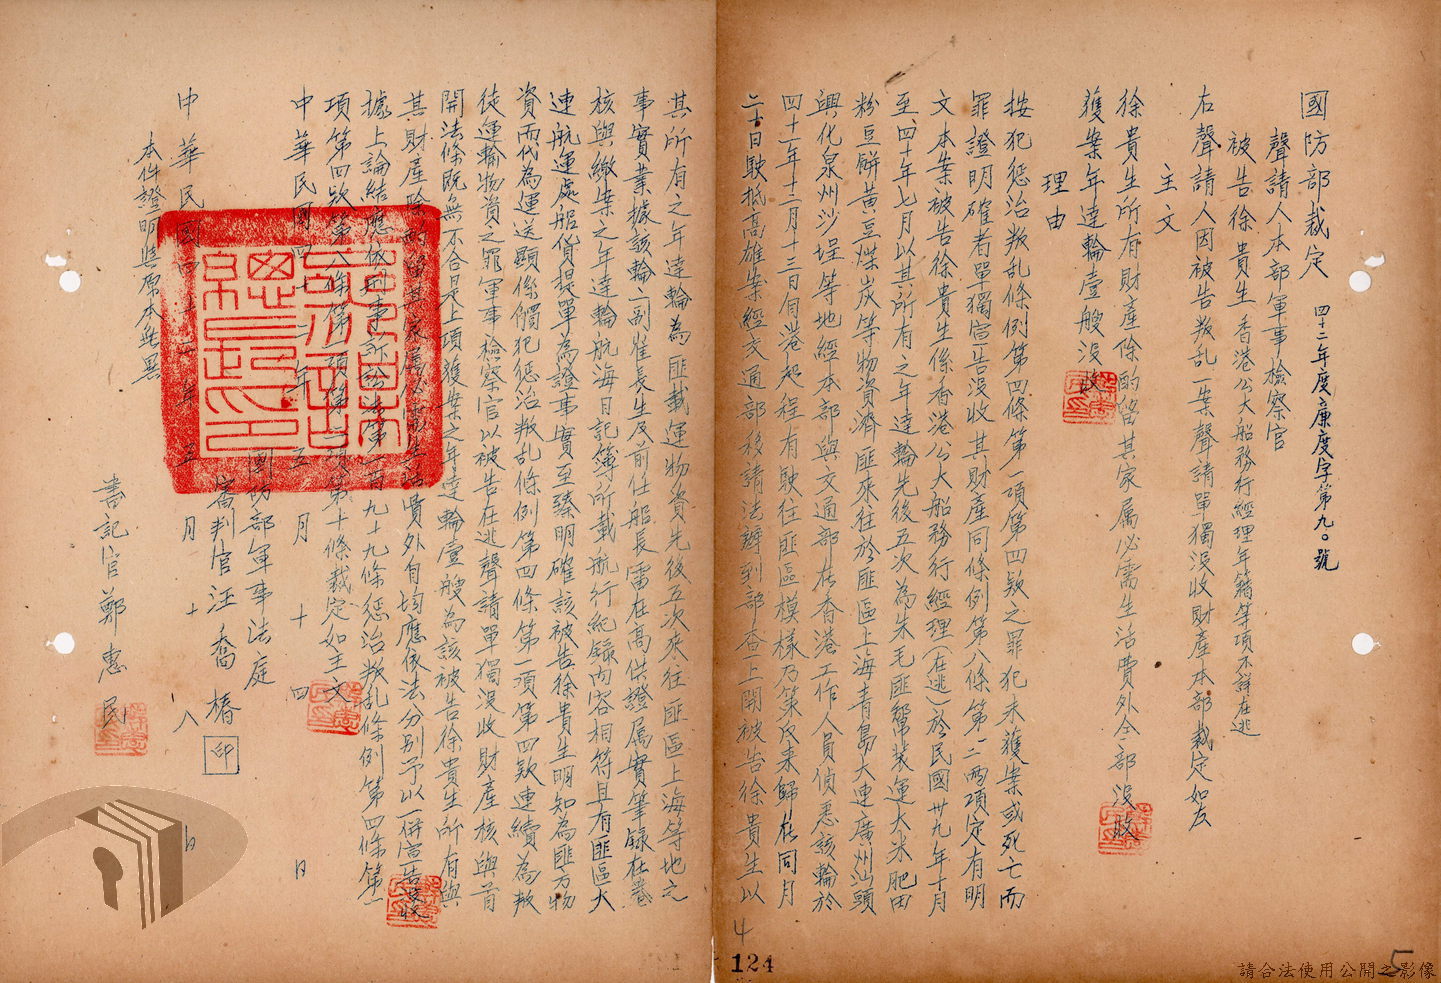 國防部裁定　四十二年度廉度字第九〇號
聲請人本部軍事檢察官
被告徐貴生　香港公大船務行經理年籍等項不詳在逃
右聲請人因被告叛乱一案聲請單獨沒收財產本部裁定如左
主文
徐貴生所有財產除酌留其家属必需生活費外全部沒收
獲案年達輪壹艘沒收
理由
按犯惩治叛乱條例第四條第一項第四欵之罪犯未獲案或死亡而
罪證明確者單獨宣告没收其財產同條例第八條第一二兩項定有明
文本案被告徐貴生係香港公大船務行經理（在逃）於民國卅九年十月
至四十年七月以其所有之年達輪先後五次為朱毛匪幫裝運大米肥田
粉豆餅黃豆煤炭等物資濟匪來往於匪區上海青島大連廣州汕頭
興化泉州沙埕等地經本部與交通部在香港工作人員偵悉該輪於
四十一年十二月十三日由港起程有駛往匪區模樣乃策反來歸在同月
二十日駛抵高雄案經交通部移請法辦到部查上開被告徐貴生以
其所有之年達輪為匪載運物資先後五次來往匪區上海等地之
事實業據該輪一副崔長生及前任船長雷在高供證属實筆錄在卷
核與繳案之年達輪航海日記簿所載航行紀錄內容相符且有匪區大
連航運處船貨提單為證事實至臻明確該被告徐貴生明知為匪方物
資而代為運送顯係觸犯惩治叛乱條例第四條第一項第四欵連續為叛
徒運輸物資之罪軍事檢察官以被告在逃聲請單獨沒收財產核與首
開法條既無不合是上項獲案之年達輪壹艘為該被告徐貴生所有與
其財產除酌留其家属必需生活費外自均應依法分别予以一併宣告没收
據上論結應依刑事訴訟法第二百九十九條惩治叛乱條例第四條第一
項第四欵第八條第一項第二項第十條裁定如主文
中華民國四十二年五月十四日
國防部軍事法庭
審判官汪喬椿　印
本件證明與原本無異
中華民國四十二年五月十八日
書記官鄭惠民
4
124
5
請合法使用公開之影像